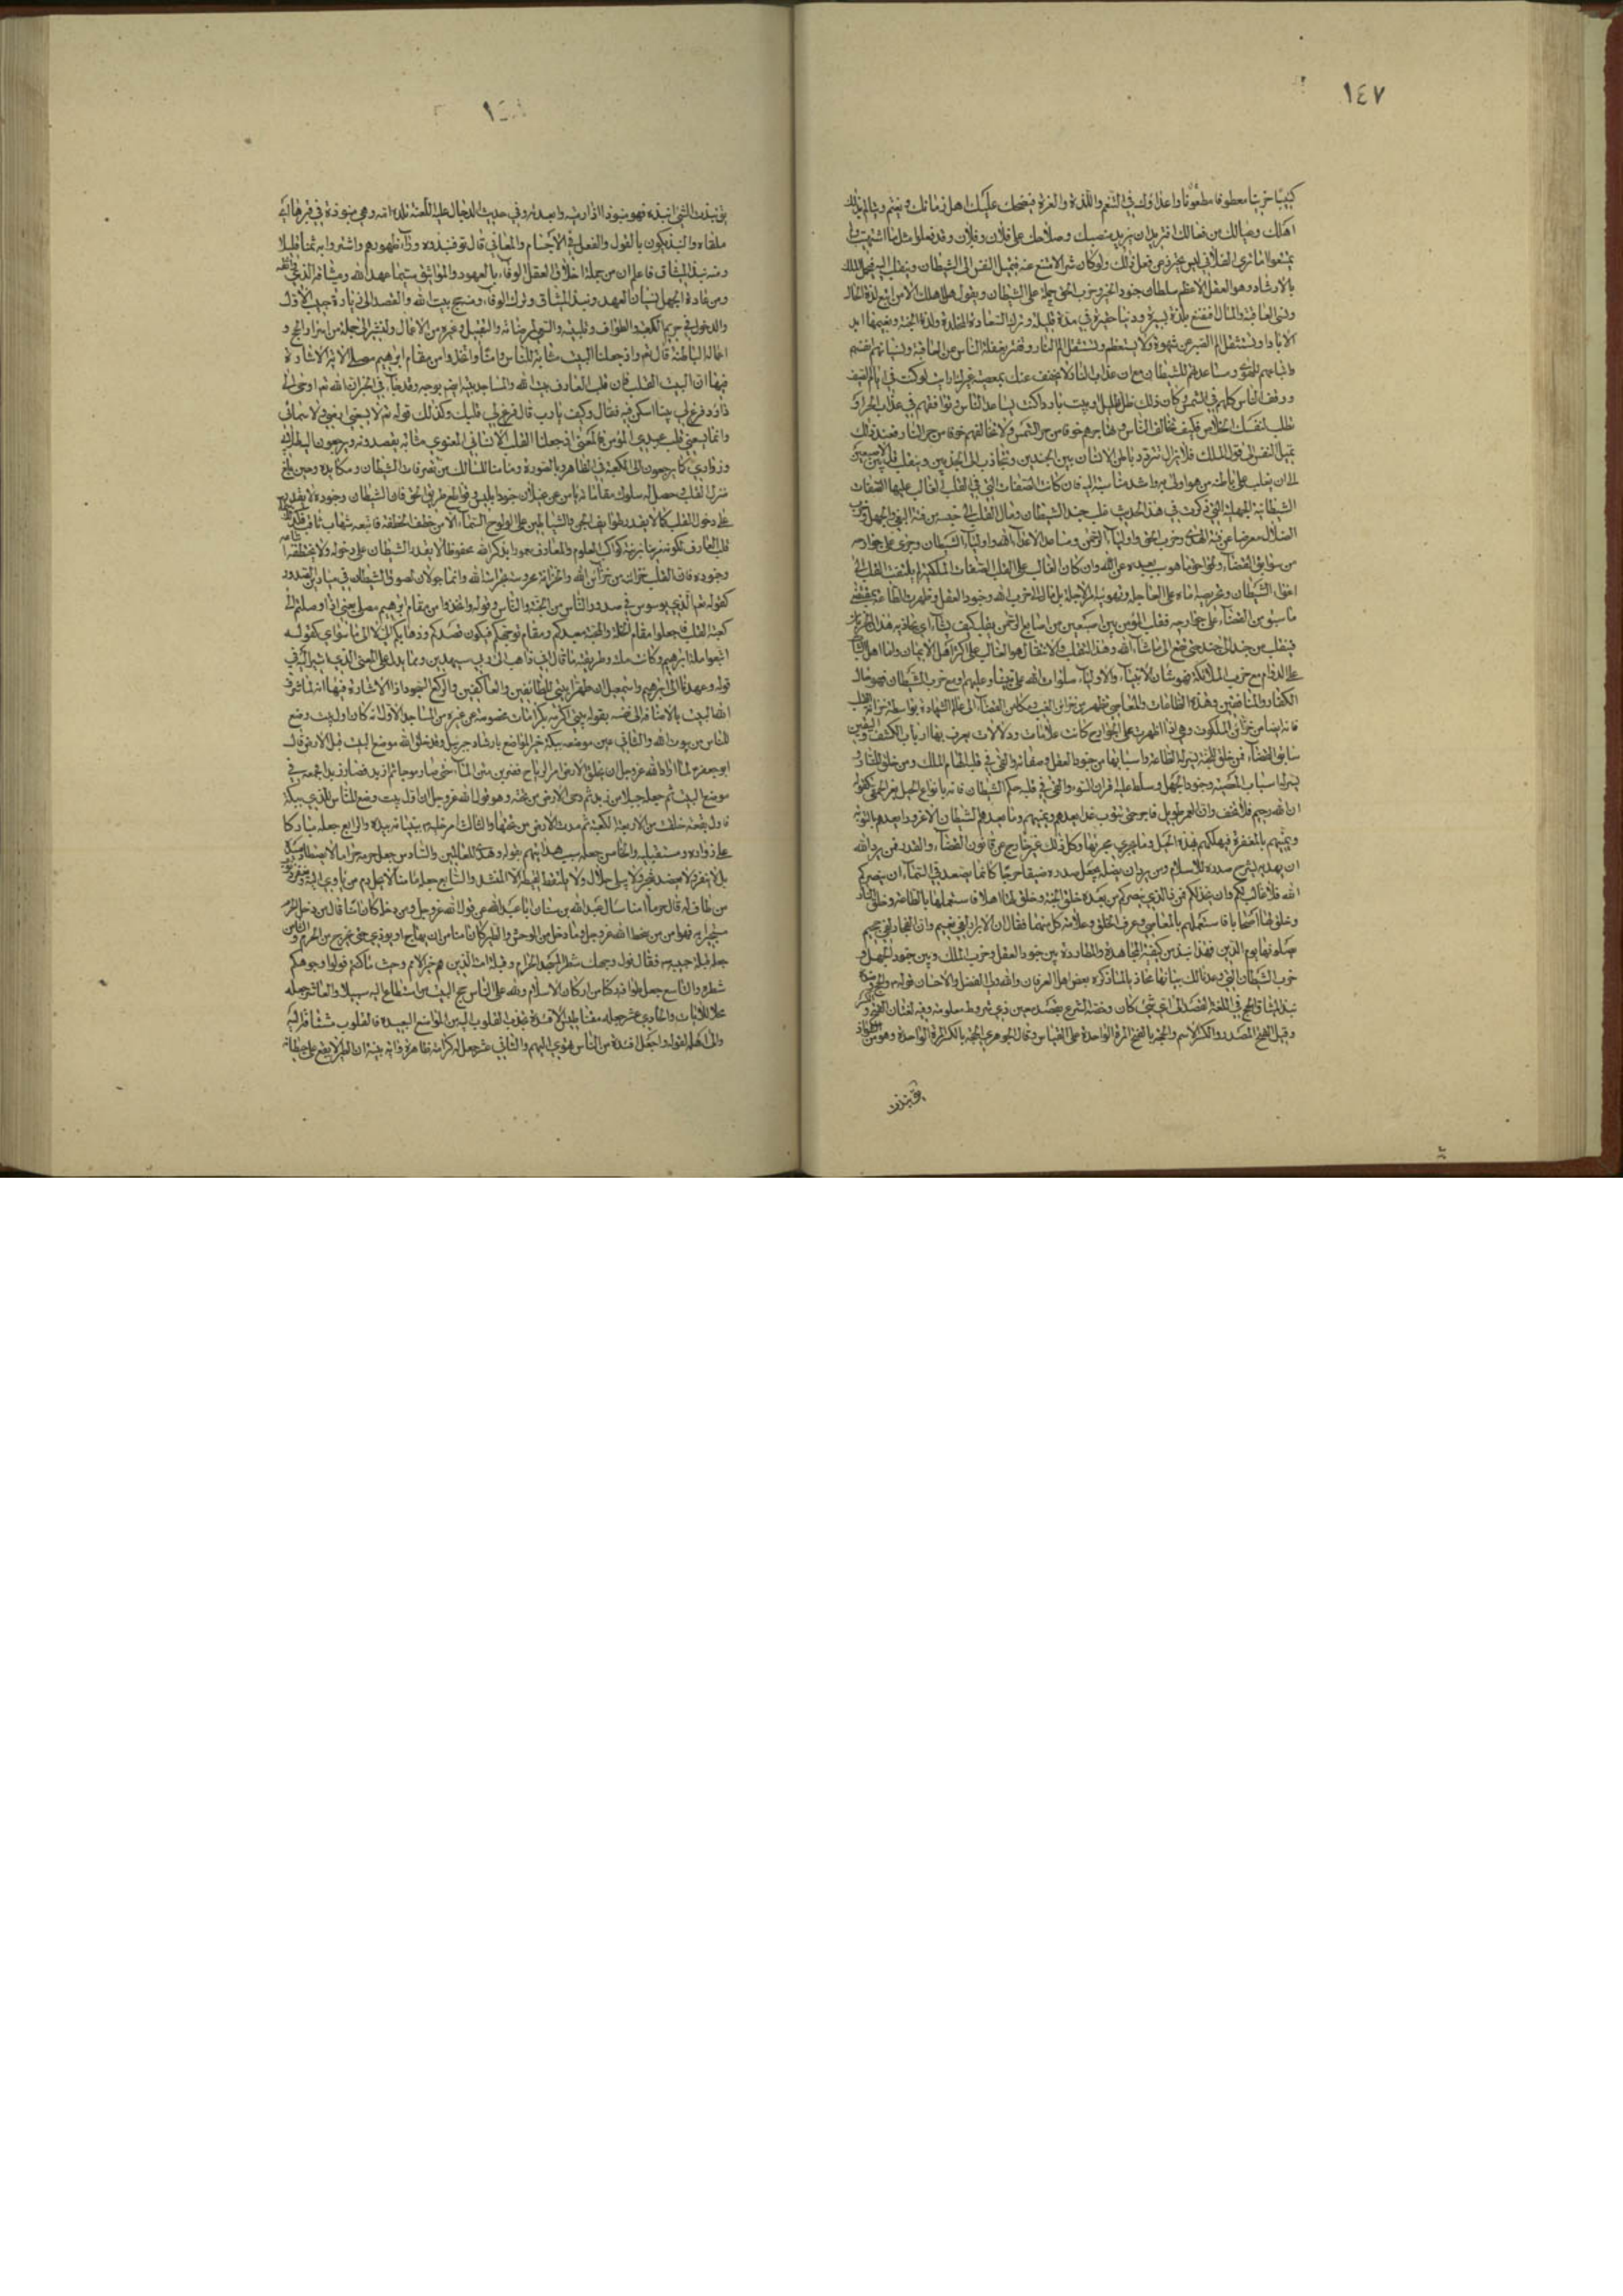 ١٤٧
اهلك وعيالك من فعالك افتريد ان يزيد منصبك وصلاحك على فلان وفلان وقد فعلوا مثل ما اشتهيت ولم
يمتنعوا اما ترى الفلاني ليس يحترز عن فعل ذلك ولو كان شرا لامتنع عنه فيميل النفس الى الشيطان وينقلب اليه فيحمل الملك
بالارشاد وهو العقل الاعظم سلطان جنود الخير وحزب الحق حملة على الشيطان ويقول هل هلك الا من اتبع لذة الحال
ونسي العاقبة والمال افتقنع بلذة يسيرة ودنيا حقيرة في مدة قليلة وترك السعادة المخلدة ولذة الجنة ونعيمها ابد
الآباد او تستثقل الم الصبر عن شهوة ولا تستعظم وتستثقل الم النار وتغتر بغفلة الناس عن العاقبة ونسيانهم انفسهم
واتباعهم للهوى ومساعدتهم للشيطان مع ان عذاب النار لا يخفف عنك بمعصية غيرك ارايت لو كنت في ايام الصيف
ووقف الناس كلهم في الشمس وكان ذلك ظل ظليل او بيت بارد اكنت تساعد الناس وتوافقهم في عذاب الحر او
تطلب لنفسك الخلاص فكيف تخالف الناس وتهاجرهم خوفا من حر الشمس ولا تخالفهم خوفا من حر النار فعند ذلك
تميل النفس الى قول الملك فلا تزال تتردد باطن الانسان بين الجندين وتتجاذب الى الجذبين وينقلب قلبه بين الاصبعين
الى ان يغلب على باطنه من هو اولى به واشد مناسبة اليه فان كانت الصفات التي في القلب الغالب عليها الصفات
الشيطانية المهلكة التي ذكرت في هذا الحديث غلب جند الشيطان ومال القلب الى حضيض فئة البغي والجهل وحزب
الضلال معرضا عن فئة الهدى وحزب الحق واولياء الرحمن ومساعدا لاعداء الله واولياء الشيطان وجرى على جوارحه
من سوابق القضاء وغواية ما هو سبب بعده عن الله وان كان الغالب على القلب الصفات الملكية لم يلتفت القلب الى
اغواء الشيطان وتحريصه اياه على العاجلة وتهوينه امر الآجلة بل مال الى حزب الله وجنود العقل وظهرت الطاعة بمقتضى
ما سبق من القضاء على جوارحه فقلب المؤمن بين اصبعين من اصابع الرحمن يقلب كيف يشاء
فينقلب من جند الى جند حتى يقع الى ما شاء الله وهذا التقلب والانتقال هو الغالب على اكثر اهل الايمان واما اهل الثبات
على الدوام مع حزب الملائكة فهو شان الانبياء والاولياء صلوات الله على نبينا وعليهم او مع حزب الشيطان فهو حال
الكفار والمنافقين وهذه الطاعات والمعاصي تظهر من خزائن الغيب ومكامن القضاء الى عالم الشهادة بواسطة خزانة القلب
فانه ايضا من خزائن الملكوت وهي اذا ظهرت على الجوارح كانت علامات ودلالات يعرف بها ارباب الكشف واليقين
سابق القضاء فمن خلق للجنة يسر له الطاعة واسبابها من جنود العقل وصفاته والقي في قلبه الهام الملك ومن خلق للنار
يسر له اسباب المعصية وجنود الجهل وسلط عليه اقران السوء والقي في قلبه حكم الشيطان فانه بانواع الحيل يغر الحمقى كقوله
ان الله رحيم فلا تخف وان العمر طويل فاصبر حتى تتوب غدا يعدهم ويمنيهم وما يعدهم الشيطان الا غرورا يعدهم بالتوبة
ويمنيهم بالمغفرة فيهلكهم بهذه الحيل وما يجري مجراها وكل ذلك غير خارج عن قانون القضاء والقدر فمن يرد الله
ان يهديه يشرح صدره للاسلام ومن يرد ان يضله يجعل صدره ضيقا حرجا كانما يصعد في السماء ان ينصركم
الله فلا غالب لكم وان يخذلكم فمن ذا الذي ينصركم من بعده خلق الجنة وخلق لها اهلا فاستعملها بالطاعة وخلق النار
وخلق لها اصحابا فاستعملهم بالمعاصي وعرف الخلق وعلامة كل منهما فقال ان الابرار لفي نعيم وان الفجار لفي جحيم
يصلونها يوم الدين فهذا نبذ من كيفية المجاهدة والمطاردة بين جنود العقل وحزب الملك وبين جنود الجهل و
حزب الشيطان التي وعدنالك بيانها محاذيا لما ذكره بعض اهل العرفان والله ولي الفضل والاحسان قوله والحج وضده
نبذ الميثاق الحج في اللغة القصد الى اي شيء كان وخصه الشرع بقصد معين ذي شروط معلومة وفيه لغتان الفتح والكسر
وقيل الفتح المصدر والكسر الاسم والحجة بالفتح المرة الواحدة على القياس وقال الجوهري الحجة بالكسر المرة الواحدة وهو من الشواذ
يق نبذت
يق نبذت الشيء انبذه فهو منبوذ اذا رميته وابعدته وفي حديث الدجال عليه اللعنة تلده امه وهي منبوذة في قبرها اي
ملقاه والنبذ يكون بالقول والفعل في الاجسام والمعاني قال تع فنبذوه وراء ظهورهم واشتروا به ثمنا قليلا
ومنه نبذ الميثاق فاعلم ان من جملة اخلاق العقل الوفاء بالعهود والمواثيق سيما عهد الله وميثاقه الذي
ومن عادة الجهل نسيان العهد ونبذ الميثاق وترك الوفاء ومنه حج بيت الله والقصد الى زيارة حبيب الاول
والدخول في حريم الكعبة والطواف وتلبيته والسعي لمرضاته والتقبيل وغيره من الاعمال ولنشر الى جملة من اسرار الحج و
اعماله الباطنة قال تع واذ جعلنا البيت مثابة للناس وامنا واتخذوا من مقام ابراهيم مصلى الآية الاشارة
فيها ان البيت القلب فان قلب العارف بيت الله والمساجد بيته ايضا بوجه وقد جاء في الخبر ان الله تع اوحى الى
داود فرغ لي بيتا اسكن فيه فقال وكيف يا رب قال فرغ لي قلبك وكذلك قوله تع لا يسعني ارضي ولا سمائي
وانما يسعني قلب عبدي المؤمن فالمعنى انه جعلنا القلب الانساني المعنوي مثابة يقصدونه ويرجعون اليه
وزواري كما يرجعون الى الكعبة في الظاهر وبالصورة ومامنا للسالكين من تصرفات الشيطان ومكايده وحين بلغ
منزل القلب حصل له سلوك مقاماته باس عن غيلان جنود ابليس وقواطع طريق الحق فان الشيطان وجنوده لا يقدرون
على دخول القلب كما لا يقدر طوايف الجن والشياطين على الولوج السماء الا من خطف الخطفة فاتبعه شهاب ثاقب
قلب العارف لكونه مزينا بزينة كواكب العلوم والمعارف محروسا بذكر الله محفوظا لا يقدر الشيطان على دخوله
وجنوده فان القلب خزانة من خزائن الله والخزانة محروسة بحراسة الله وانما جولان لصوص الشيطان في ميادين الصدور
كقوله تع الذي يوسوس في صدور الناس من الجنة والناس وقوله واتخذوا من مقام ابراهيم مصلى يعني اذا وصلتم الى
كعبة القلب فاجعلوا مقام الخلة والمحبة معبدكم ومقام توجهكم فيكون قصدكم وذهابكم الي لا الى ما سواي كقوله
اتبعوا ملة ابراهيم وكانت ملته وطريقته ما قال اني ذاهب الى ربي سيهدين ومما يدل على المعنى الذي اشير اليه في
قوله وعهدنا الى ابراهيم واسمعيل ان طهرا بيتي للطائفين والعاكفين والركع السجود اذ الاشارة فيها انه لما شرف
الله البيت بالاضافة الى نفسه بقوله بيتي اكرمه بكرامات مخصوصة عن غيره من المساجد الاول انه كان اول بيت وضع
للناس من بيوت الله والثاني عين موضعه ببكة خير المواضع بارشاد جبرئيل وقد خلق الله موضع البيت قبل الارض قال
ابو جعفر ع لما اراد الله عز وجل ان يخلق الارض امر الرياح فضربن متن الماء حتى صار موجا ثم ازبد فصار زبدا فجمعه في
موضع البيت ثم جعله جبلا من زبد ثم دحى الارض من تحته وهو قول الله عز وجل ان اول بيت وضع للناس للذي ببكة
فاول بقعة خلقت من الارض الكعبة ثم مدت الارض من تحتها والثالث امر خليله ببنيانه بيده والرابع جعله مباركا
على زواره ومستقبليه والخامس جعله سبب هدايتهم بقوله وهدى للعالمين والسادس جعل حرمه حراما لا يصطاد صيده
بل لا ينفر ولا يعضد شجره ولا يسلى خلاله ولا يلتقط لقيطة الا المنشد والسابع جعله مامنا
من طاف له قال حرما امنا سال عبد الله بن سنان ابا عبد الله عن قول الله عز وجل ومن دخله كان امنا قال من دخل الحرم
مستجيرا به فهو امن من سخط الله عز وجل وما دخل من الوحش والطير كان امنا من ان يهاج او يؤذى حتى يخرج من الحرم والثامن
جعله قبلة حبيبه فقال فول وجهك شطر المسجد الحرام وقبلة امته الذين هم خير الامم وحيث ما كنتم فولوا وجوهكم
شطره والتاسع جعل طوافه ركنا من اركان الاسلام ولله على الناس حج البيت من استطاع اليه سبيلا والعاشر جعله
محلا للآيات والحادي عشر جعله مغناطيس الافئدة يجذب القلوب اليه من المواضع البعيدة فالقلوب مشتاقة اليه
والى اهله لقوله واجعل افئدة من الناس تهوي اليهم والثاني عشر جعل له كرامة ظاهرة